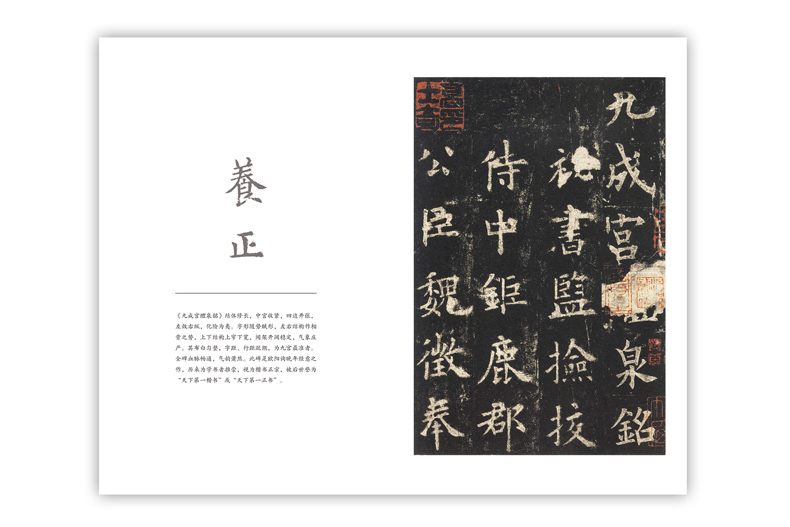 養正
《九成宫醴泉铭》结体修长，中宫收紧，四边开张，
左敛右纵，化险为夷。字形随势赋形，左右结构作相
背之势，上下结构上窄下宽，间架开阔稳定，气象庄
严。其布白匀整，字距、行距疏朗，为九宫最准者。
全碑血脉畅通，气韵萧然。此碑是欧阳询晚年经意之
作，历来为学书者推崇，视为楷书正宗，被后世誉为
“天下第一楷书”或“天下第一正书”。
九成宮泉銘
祕書監撿挍
侍中鉅鹿郡
公臣魏徵奉